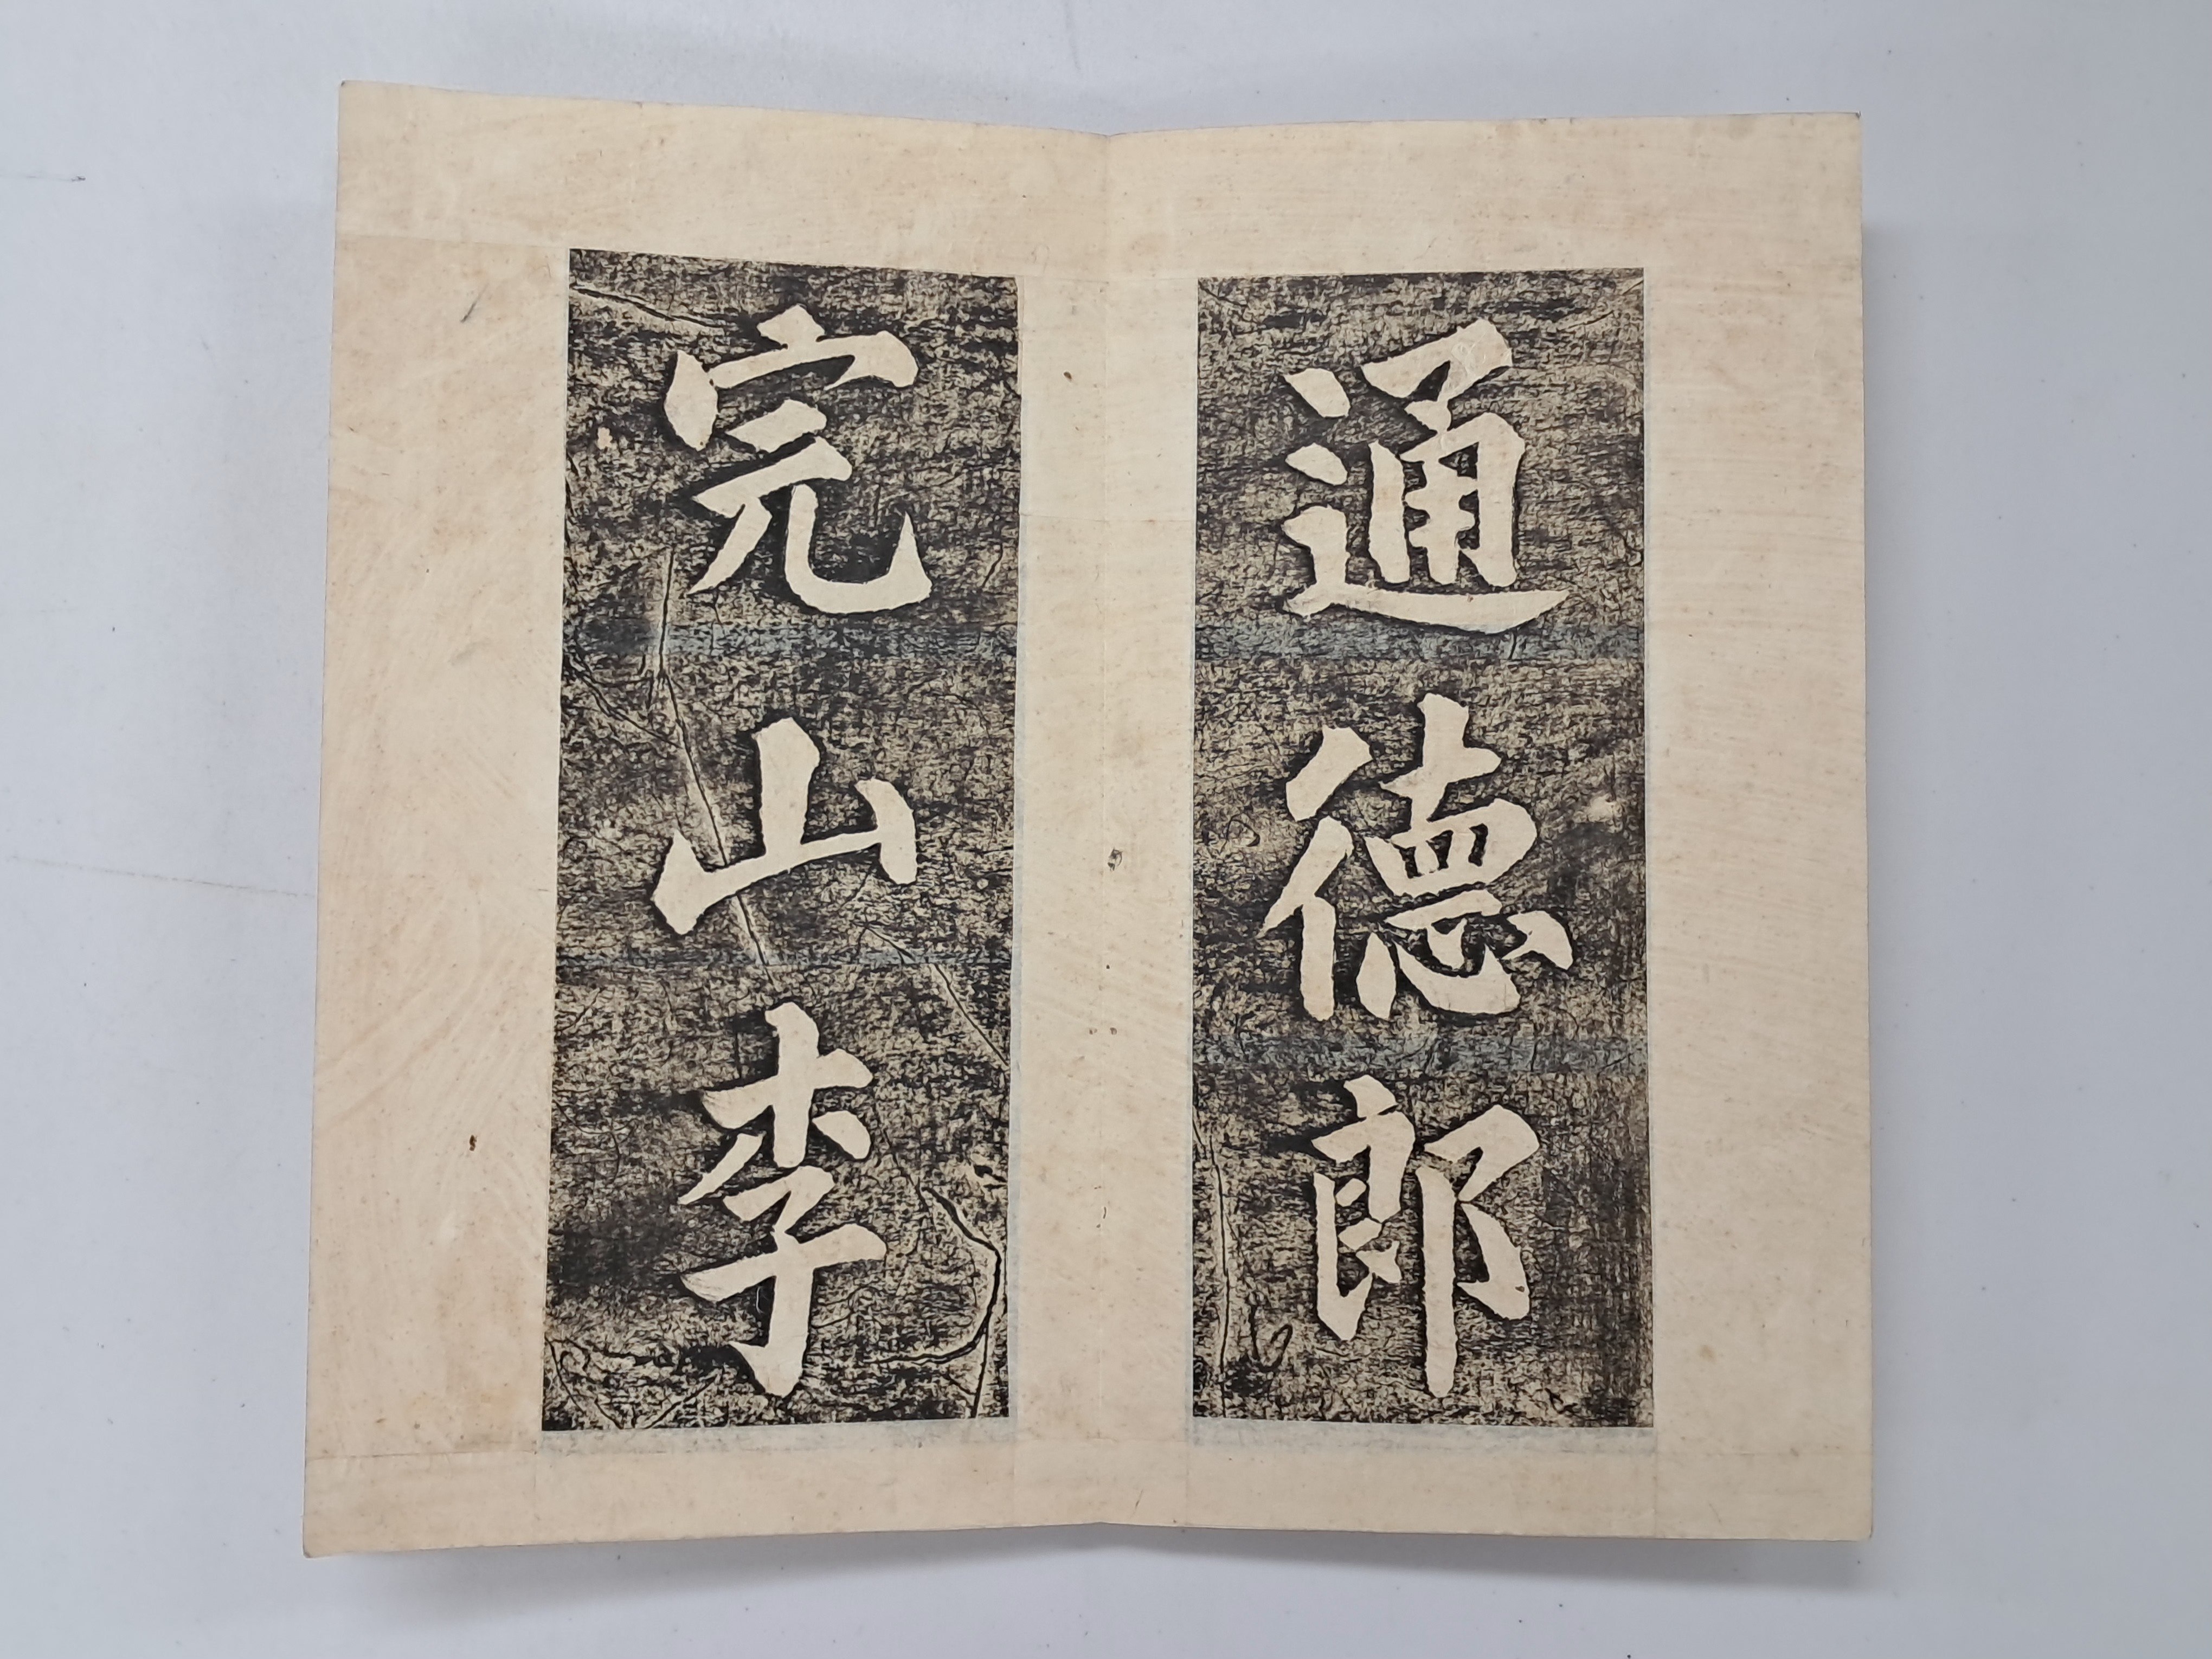 通德郎
完山李